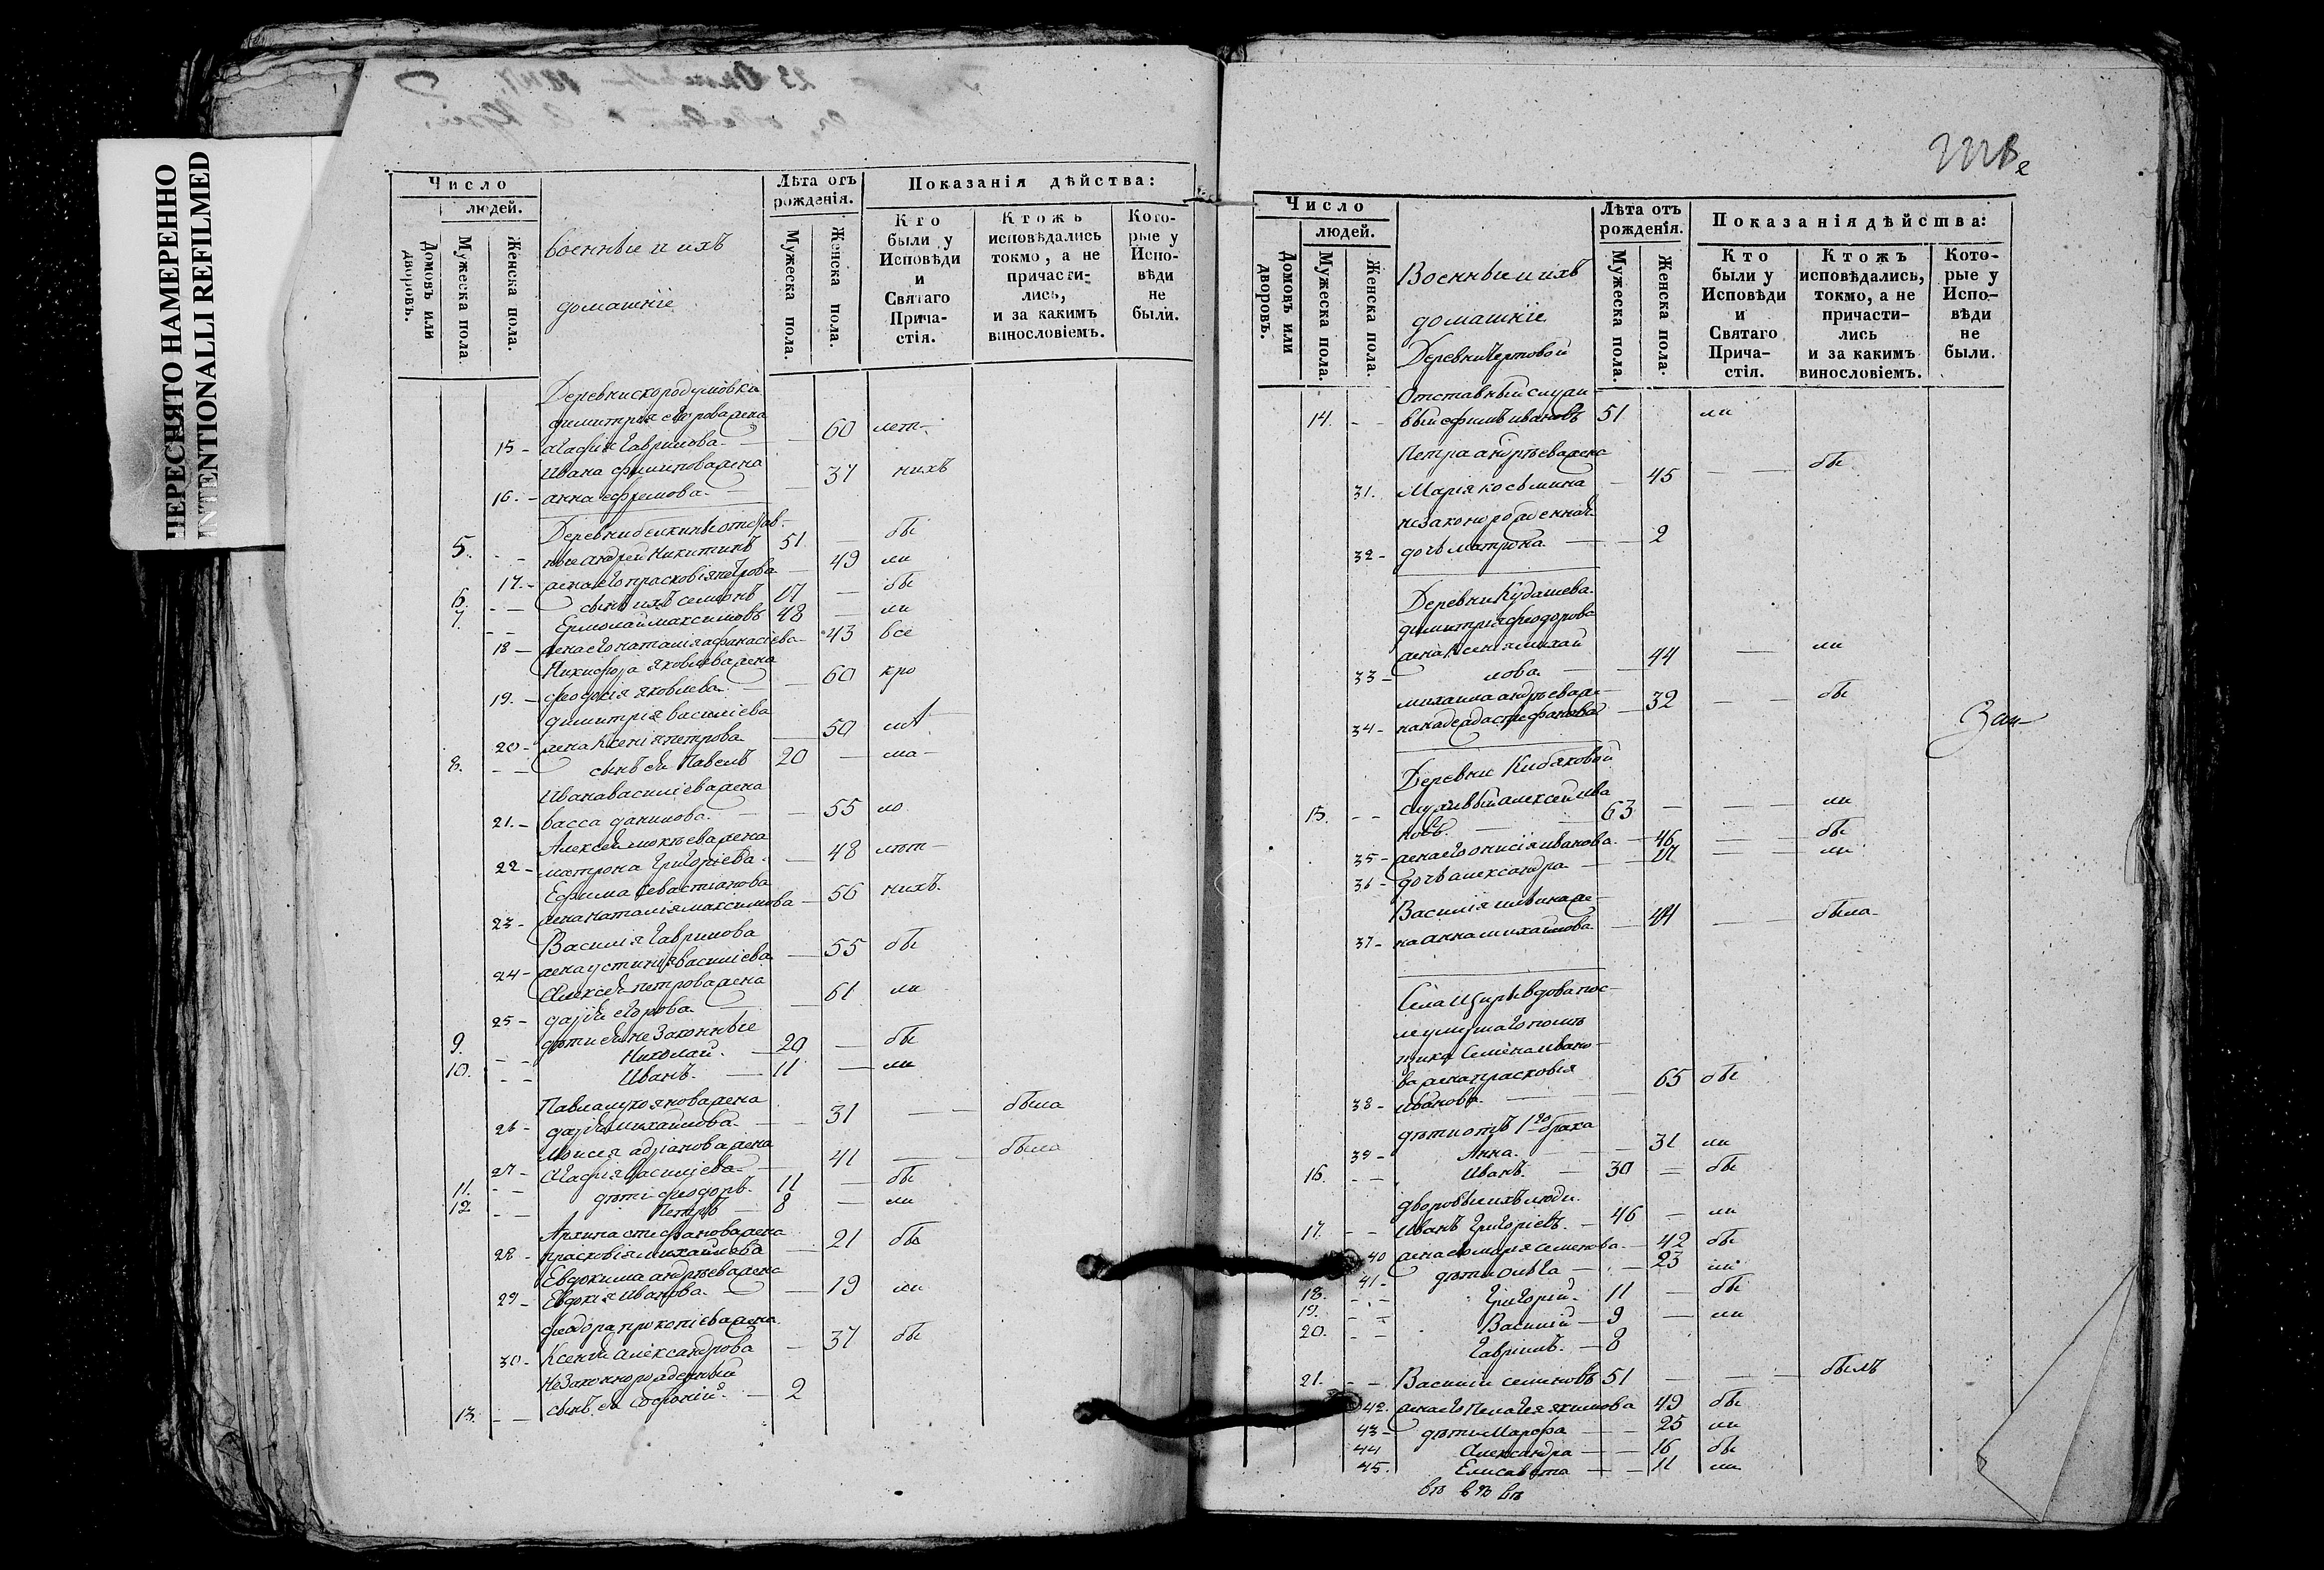 ПЕРЕСНЯТО НАМЕРЕННО
INTENTIONALLI REFILMED
Число
людей.
Домовъ или дворовъ.
Мужеска пола.
Женска пола.
военные и ихъ
домашніе
Лѣта отъ рожденія.
Мужеска пола.
Женска пола.
Показанія дѣйства:
Кто были у Исповѣди и Святаго Причастія.
Ктожъ исповѣдались токмо, а не причастились, и за какимъ винословіемъ.
Которые у Исповѣди не были.
Деревни скородумовки
димитрія егорова жена
15 - агафія Гаврилова - 60 лет-
Ивана филипова жена
16 - анна ефремова - 37 нихъ
Деревни отстав-
5. - - ные андрей Никитинъ 51 - бы
17 - жена его прасковія петрова 49 ли
6. - - сынъ ихъ семионъ 17 - бы
7. - - Ермолай максимовъ 48 - ли
18 - жена его наталія афанасіева 43 все
Никифора яковлева жена
19. - феодосія яковлева - 60 кро
димитрія василіева
20 - жена Ксенія петрова - 50
8. - - сынъ ея Павелъ 20 - ма-
Ивана василіева жена
21. - васса данилова. - 55 ло
Алексея мокѣева жена
22 - матрона григоріева - 48 лѣт-
Ефима севастіанова
23 - жена наталія максимова - 56 нихъ.
Василія гаврилова
24 - жена устинія василіева - 55 бы
Алексея петрова жена
25 - дарія егорова - 61 ли
дѣти ея не законные
9. - - Николай. - 20 - бы
10. - - Иванъ. - 11 - ли
Павла лукоянова жена
26 - дарія михайлова. - 31 - - была
Моисея адріанова жена
27 - Агафія василіева - 41 - - была
11. - - дѣти феодоръ. 11 - бы
12 - - Петръ - 8 - ли
Архипа стефанова жена
28 - прасковія михайлова - 21 бы
Евдокима андрѣева жена
29 - Евдокія иванова. - 19 ли
феодора прокопіева жена
30 - Ксенія александрова - 37 бы
незаконнорожденный
13. - - сынъ ея софоній. - 2
Число
людей.
Домовъ или дворовъ.
Мужеска пола.
Женска пола.
Военные и ихъ
домашніе
Лѣта отъ рожденія.
Мужеска пола.
Женска пола.
Показанія дѣйства:
Кто были у Исповѣди и Святаго Причастія.
Ктожъ исповѣдались, токмо, а не причастились и за какимъ винословіемъ.
Которые у Исповѣди не были.
Деревни Чертовой
Отставный служи-
14. - - вый ефимъ ивановъ 51 ли
Петра андрѣева жена
31. Марія косьмина - 45 - - бы
незаконорожденная
32 - дочь матрона - - 2
Деревни Кудашева
димитрія феодорова
жена Ксенія михай
33 - лова - 44 - ли
михаила андрѣева же-
34 - на надежда стефанова - 32 - - бы
Деревни Кибяковой
служивый алексей ива
15. - - новъ. - 63 - - - ли
35 - жена его онисія иванова - 46 - - бы
36 - дочь александра - - 17 - - ли
Василія ильина же-
37 - на анна михайлова - 44 - - была
Села вдова пос-
ле умершаго помѣ
щика Семена ивано-
ва жена прасковія
38 - иванова. - 65 бы
дѣти отъ 1го брака
39 - Анна. - - 31 ли
16. - - Иванъ. - 30 - бы
дворовые ихъ люди
17. - - Иванъ Григоріевъ. - 46 - ли
40 жена его марія семенова - 42 бы
41 - дѣти ольга - - 23 ли
18. - - Григорій. 11 - бы
19. - - Василій - 9 - ли
20. - - Гаврилъ. - 8
21. - - Василій семеновъ 51 - - - былъ
42. жена его Пелагея якимова 49 бы
43 - дѣти Марфа - - 25 ли
44 Александра - - 16 бы
45. Елисавета - - 11 ли